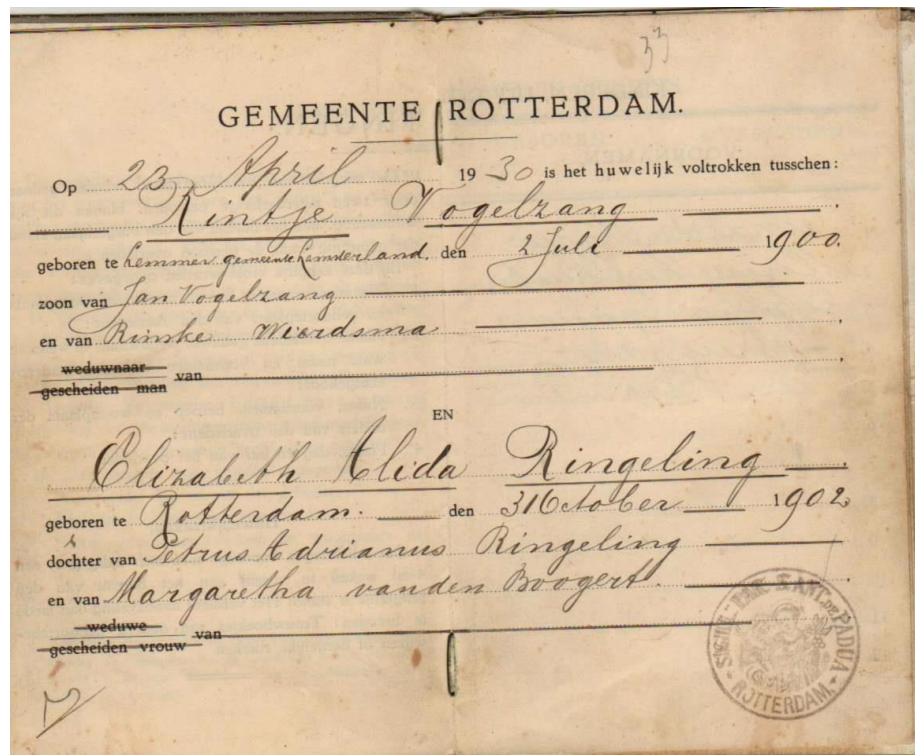 33
GEMEENTE ROTTERDAM.
Op 23 April 1930 is het huwelijk voltrokken tusschen:
Rintje Vogelzang
geboren te Lemmer gemeente Lemsterland. den 2 Juli 1900.
zoon van Jan Vogelzang
en van Rinske Wierdsma
weduwnaar
gescheiden man van
EN
Elizabeth Alida Ringeling
geboren te Rotterdam. den 31 October 1902
dochter van Petrus Adrianus Ringeling
en van Margaretha van den Boogert.
weduwe
gescheiden vrouw van
ANT. DE PADUA - ROTTERDAM.